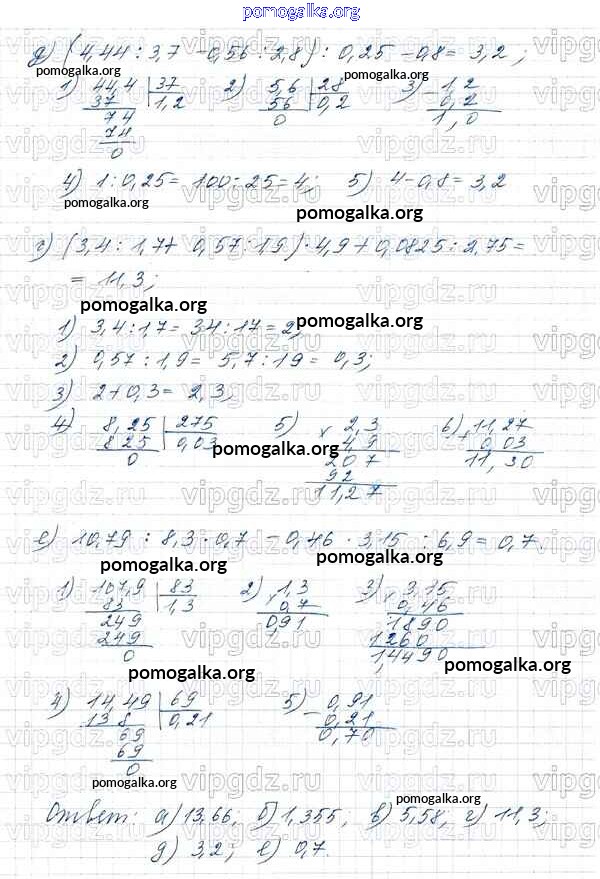 pomogalka.org
д) (4,44 : 3,7 - 0,56 : 2,8) : 0,25 - 0,8 = 3,2 ;
pomogalka.org pomogalka.org pomogalka.org
1) 44,4 37 2) 5,6 28 3) - 1,2
37 1,2 56 0,2 0,2
74 0 1,0
74
0
4) 1 : 0,25 = 100 : 25 = 4; 5) 4 - 0,8 = 3,2
pomogalka.org
г) (3,4 : 1,7 + 0,57 : 1,9) · 4,9 + 0,0825 : 2,75 =
= 11,3;
pomogalka.org
1) 3,4 : 1,7 = 34 : 17 = 2; pomogalka.org
2) 0,57 : 1,9 = 5,7 : 19 = 0,3;
3) 2 + 0,3 = 2,3;
4) 8,25 275 5) × 2,3 6) + 11,27
825 0,03 4,9 0,03
0 207 11,30
92
11,27
pomogalka.org pomogalka.org
е) 10,79 : 8,3 · 0,7 - 0,46 · 3,15 : 6,9 = 0,7.
pomogalka.org pomogalka.org
1) 107,9 83 2) × 1,3 3) × 3,15
83 1,3 0,7 0,46
249 0,91 1890
249 1260
0 1,4490
pomogalka.org pomogalka.org
4) 14,49 69 5) - 0,91
138 0,21 0,21
69 0,70
69
0
pomogalka.org pomogalka.org
pomogalka.org
Ответ: а) 13,66; б) 1,355, в) 5,58, г) 11,3;
д) 3,2; е) 0,7.
vipgdz.ru